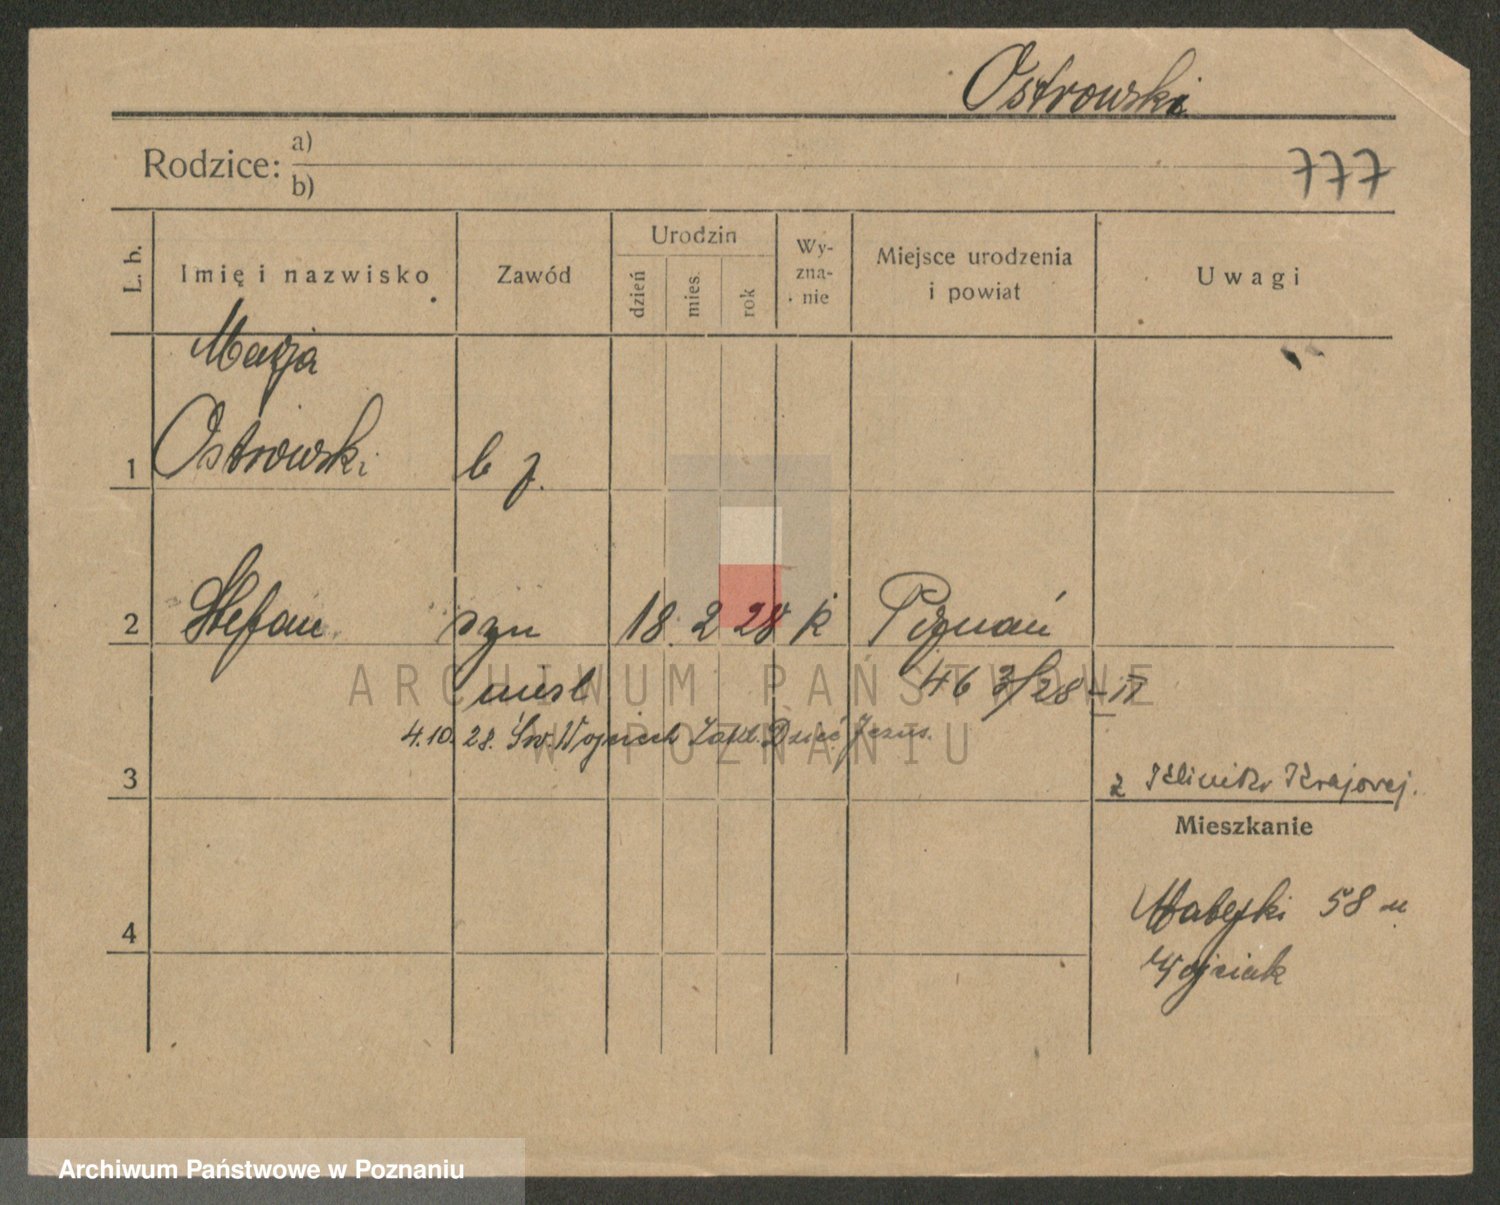 Ostrowski
Rodzice: a)
b)
777
L. b.
Imię i nazwisko
Zawód
Urodzin
dzień
mies.
rok
Wy-
zna-
nie
Miejsce urodzenia
i powiat
Uwagi
Marja
1 Ostrowski b z.
2 Stefan syn 18. 2 28 k Poznań
46 3/28 - II
4.10.28. Św. Wojciech Zakł. Dzieć. Jezus.
3
z Kliniki Krajowej.
Mieszkanie
4
58 u
Wojciak
ARCHIWUM PAŃSTWOWE
W POZNANIU
Archiwum Państwowe w Poznaniu